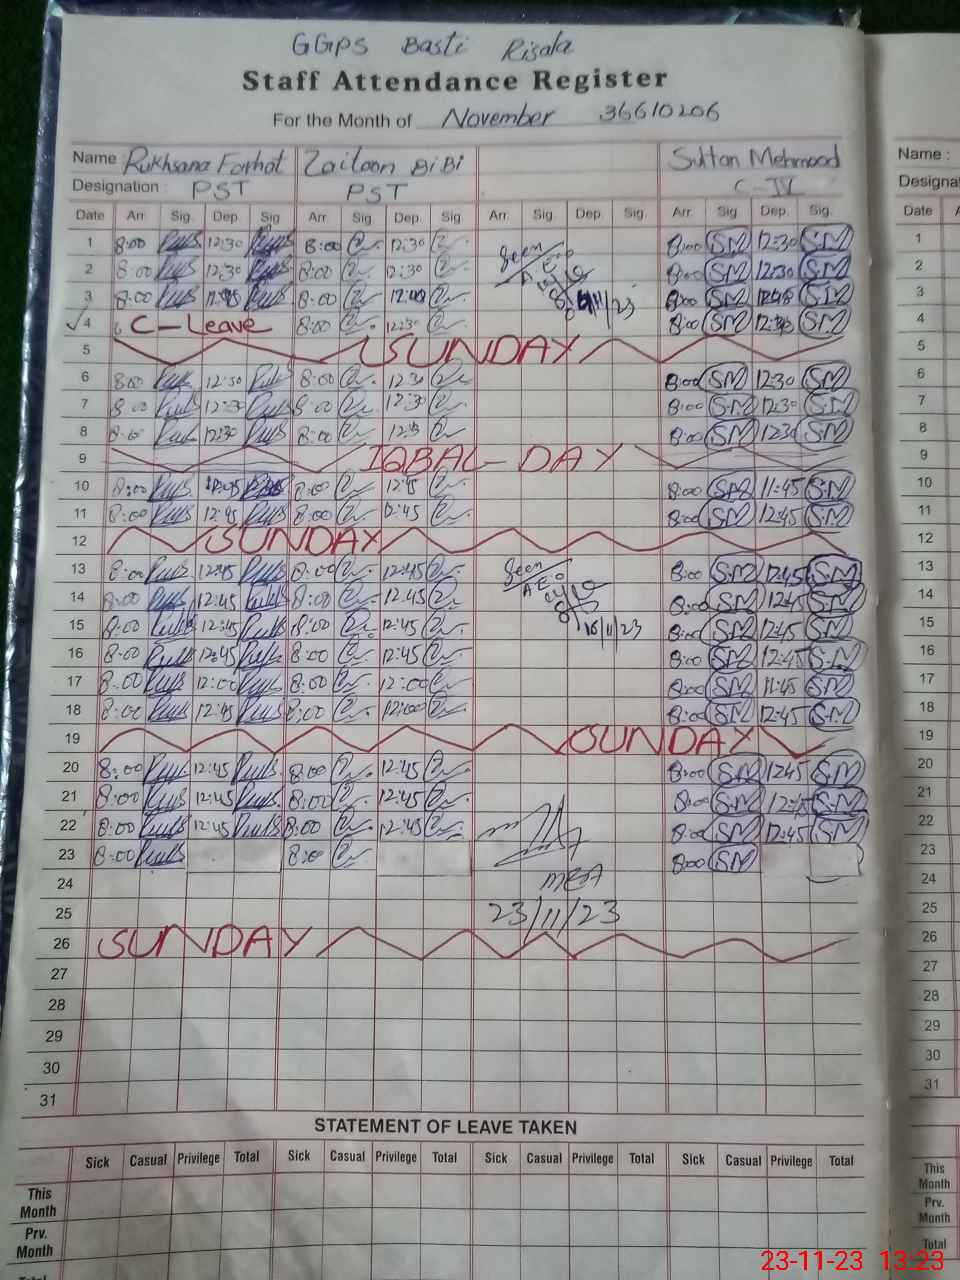 GGPS Basti Risala
Staff Attendance Register
For the Month of November 36610206
Name Rukhsana Farhat Zaitoon BiBi Sultan Mehmood Name :
Designation : PST PST C-IV
Date Arr. Sig. Dep. Sig. Arr. Sig. Dep. Sig. Arr. Sig. Dep. Sig. Arr. Sig. Dep. Sig. Date
1 8:00 12:30 8:00 12:30 Seen 8:00 SM 12:30 S.M 1
2 8:00 12:30 8:00 12:30 A.E.O 8:00 SM 12:30 S.M 2
3 8:00 8:00 11/23 8:00 SM 12:45 SM 3
4 C-Leave 8:00 12:30 8:00 SM SM 4
5 SUNDAY 5
6 8:00 12:30 8:00 12:30 8:00 SM 12:30 SM 6
7 8:00 12:30 8:00 12:30 8:00 SM 12:30 SM 7
8 8:00 12:30 8:00 8:00 SM 12:30 SM 8
9 IQBAL DAY 9
10 8:00 8:00 12:45 8:00 SM 11:45 S.M 10
11 8:00 12:45 8:00 12:45 8:00 SM 12:45 S.M 11
12 SUNDAY 12
13 8:00 12:45 8:00 12:45 Seen 8:00 SM 12:45 SM 13
14 8:00 12:45 8:00 12:45 A.E.O 8:00 SM 12:45 SM 14
15 8:00 12:45 8:00 12:45 /11/23 8:00 SM 12:45 SM 15
16 8:00 12:45 8:00 12:45 8:00 SM 12:45 S.M 16
17 8:00 12:00 8:00 12:00 8:00 SM 11:45 SM 17
18 8:00 12:45 8:00 12:00 8:00 SM 12:45 S.M 18
19 SUNDAY 19
20 8:00 12:45 8:00 12:45 8:00 SM 12:45 S.M 20
21 8:00 12:45 8:00 12:45 8:00 S.M 12:45 S.M 21
22 8:00 12:45 8:00 12:45 8:00 SM 12:45 SM 22
23 8:00 8:00 8:00 SM 23
24 MEA 24
25 23/11/23 25
26 SUNDAY 26
27 27
28 28
29 29
30 30
31 31
STATEMENT OF LEAVE TAKEN
Sick Casual Privilege Total Sick Casual Privilege Total Sick Casual Privilege Total Sick Casual Privilege Total
This Month This Month
Prv. Month Prv. Month
Total
23-11-23 13:23